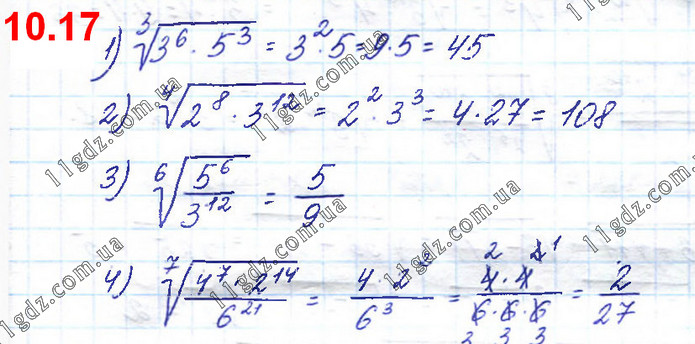 10.17
1) ∛(3⁶ · 5³) = 3² · 5 = 9 · 5 = 45
2) ∜(2⁸ · 3¹²) = 2² · 3³ = 4 · 27 = 108
3) ⁶√(5⁶/3¹²) = 5/9
4) ⁷√(4⁷ · 2¹⁴/6²¹) = 4 · 2²/6³ = 4 · 4/6 · 6 · 6 = 2/27
2 1
3 3 3
11gdz.com.ua
11gdz.com.ua
11gdz.com.ua
11gdz.com.ua
11gdz.com.ua
11gdz.com.ua